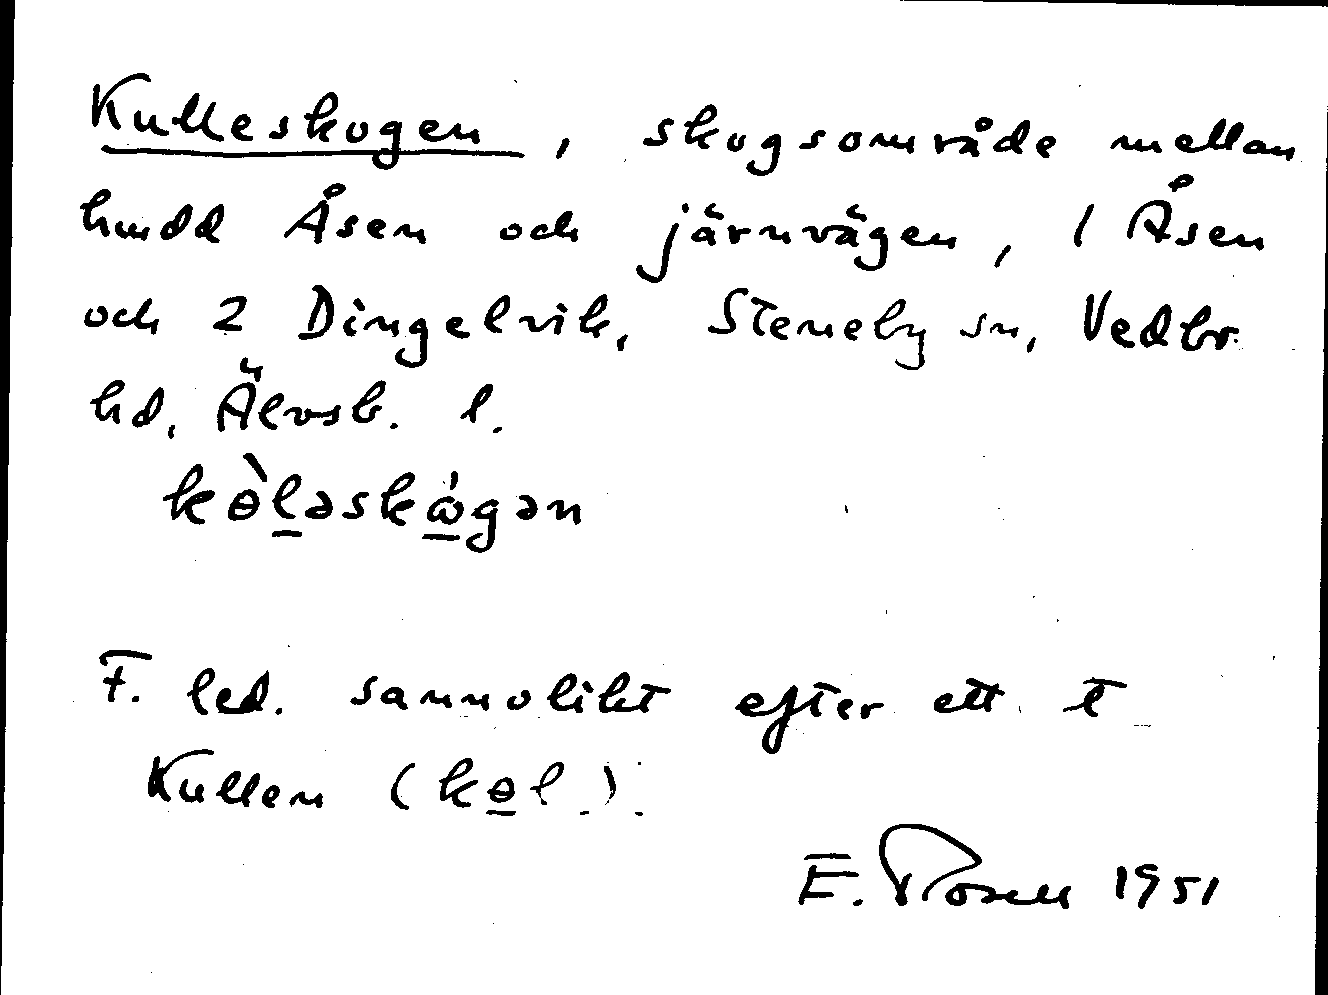 Kulleskogen, skogsområde mellan
hmdd Åsen och järnvägen, 1 Åsen
och 2 Dingelvik, Steneby sn, Vedbo
hd, Älvsb. l.
kɵ̀l̲əskώ̲gən
F. led. sannolikt efter ett t
Kullen (kɵ̲l.).
E. Rosell 1951